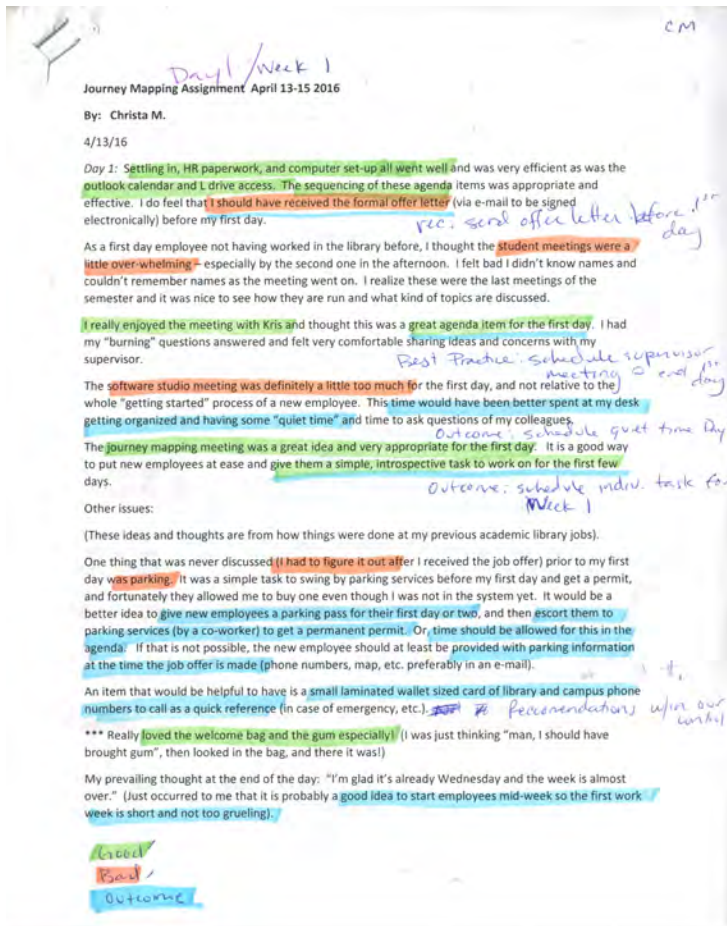 CM
Day 1/Week 1
Journey Mapping Assignment April 13-15 2016
By: Christa M.
4/13/16
Day 1: Settling in, HR paperwork, and computer set-up all went well and was very efficient as was the
outlook calendar and L drive access. The sequencing of these agenda items was appropriate and
effective. I do feel that I should have received the formal offer letter (via e-mail to be signed
electronically) before my first day.
rec: send offer letter before 1st
day
As a first day employee not having worked in the library before, I thought the student meetings were a
little over-whelming – especially by the second one in the afternoon. I felt bad I didn't know names and
couldn't remember names as the meeting went on. I realize these were the last meetings of the
semester and it was nice to see how they are run and what kind of topics are discussed.
I really enjoyed the meeting with Kris and thought this was a great agenda item for the first day. I had
my "burning" questions answered and felt very comfortable sharing ideas and concerns with my
supervisor.
Best Practice: schedule supervisor
meeting @ end 1st
day
The software studio meeting was definitely a little too much for the first day, and not relative to the
whole "getting started" process of a new employee. This time would have been better spent at my desk
getting organized and having some "quiet time" and time to ask questions of my colleagues.
Outcome: schedule quiet time Day
The journey mapping meeting was a great idea and very appropriate for the first day. It is a good way
to put new employees at ease and give them a simple, introspective task to work on for the first few
days.
Outcome: schedule indiv. task for
Week 1
Other issues:
(These ideas and thoughts are from how things were done at my previous academic library jobs).
One thing that was never discussed (I had to figure it out after I received the job offer) prior to my first
day was parking. It was a simple task to swing by parking services before my first day and get a permit,
and fortunately they allowed me to buy one even though I was not in the system yet. It would be a
better idea to give new employees a parking pass for their first day or two, and then escort them to
parking services (by a co-worker) to get a permanent permit. Or, time should be allowed for this in the
agenda. If that is not possible, the new employee should at least be provided with parking information
at the time the job offer is made (phone numbers, map, etc. preferably in an e-mail).
An item that would be helpful to have is a small laminated wallet sized card of library and campus phone
numbers to call as a quick reference (in case of emergency, etc.).
Reccomendations w/in our
control
*** Really loved the welcome bag and the gum especially! (I was just thinking "man, I should have
brought gum", then looked in the bag, and there it was!)
My prevailing thought at the end of the day: "I'm glad it's already Wednesday and the week is almost
over." (Just occurred to me that it is probably a good idea to start employees mid-week so the first work
week is short and not too grueling).
Good
Bad
Outcome